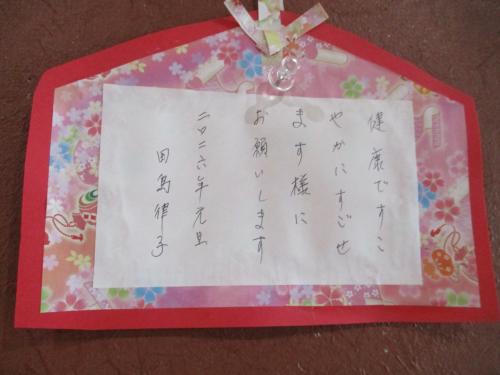 健康ですこ
やかにすごせ
ます様に
お願いします
二〇二六年元旦
田島律子